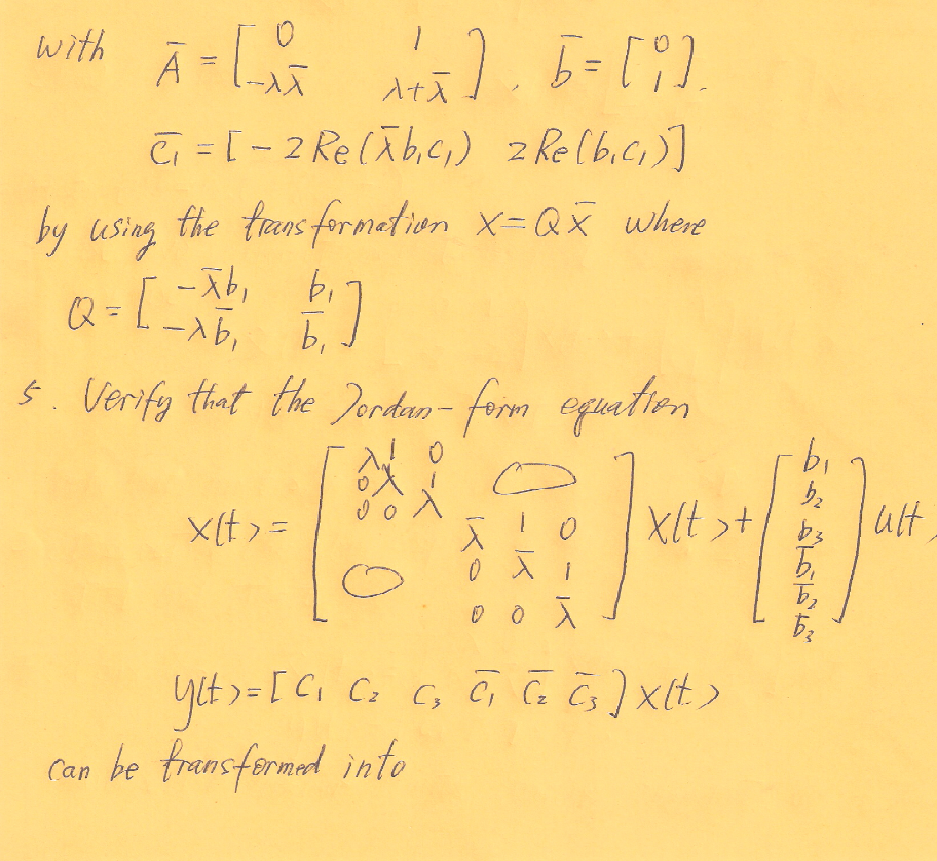 with Ā = [0 1; -λλ̄ λ+λ̄], b̄ = [0; 1].
c̄₁ = [-2Re(λ̄b₁c₁) 2Re(b₁c₁)]
by using the transformation x = Qx̄ where
Q = [-λ̄b₁ b₁; -λb̄₁ b̄₁]
5. Verify that the Jordan-form equation
x(t) = [λ 1 0 0; 0 λ 1; 0 0 λ; λ̄ 1 0; 0 0 λ̄ 1; 0 0 λ̄] x(t) + [b₁; b₂; b₃; b̄₁; b̄₂; b̄₃] u(t
y(t) = [c₁ c₂ c₃ c̄₁ c̄₂ c̄₃] x(t)
can be transformed into